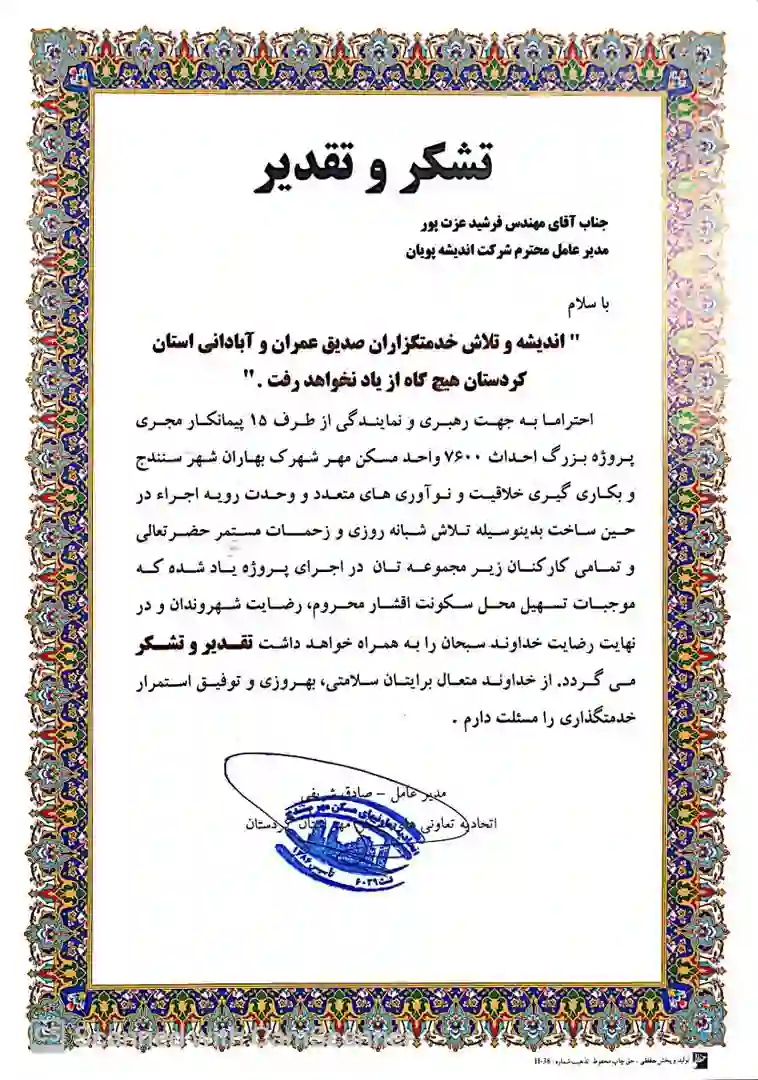 تشکر و تقدیر
جناب آقای مهندس فرشید عزت پور
مدیر عامل محترم شرکت اندیشه پویان
با سلام
" اندیشه و تلاش خدمتگزاران صدیق عمران و آبادانی استان
کردستان هیچ گاه از یاد نخواهد رفت . "
احتراما به جهت رهبری و نمایندگی از طرف ۱۵ پیمانکار مجری
پروژه بزرگ احداث ۷۶۰۰ واحد مسکن مهر شهرک بهاران شهر سنندج
و بکاری گیری خلاقیت و نوآوری های متعدد و وحدت رویه اجراء در
حین ساخت بدینوسیله تلاش شبانه روزی و زحمات مستمر حضرتعالی
و تمامی کارکنان زیر مجموعه تان در اجرای پروژه یاد شده که
موجبات تسهیل محل سکونت اقشار محروم، رضایت شهروندان و در
نهایت رضایت خداوند سبحان را به همراه خواهد داشت تقدیر و تشکر
می گردد. از خداوند متعال برایتان سلامتی، بهروزی و توفیق استمرار
خدمتگذاری را مسئلت دارم .
مدیر عامل - صادق شریفی
اتحادیه تعاونی های مسکن مهر استان کردستان
تاسیس ۱۳۸۶
ثبت ۶۰۲۹
تولید و پخش حقیقی - حق چاپ محفوظ - تذهیب شماره : H-36
Scanned with CamScanner